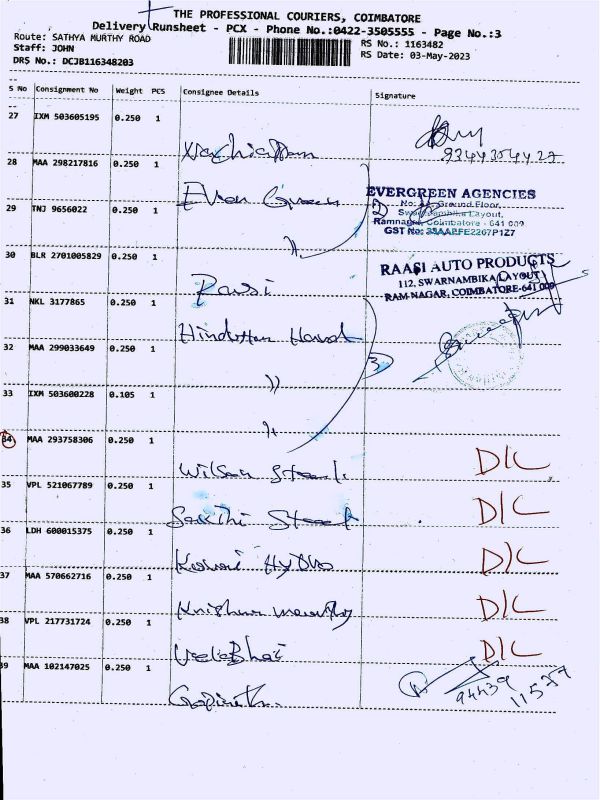 THE PROFESSIONAL COURIERS, COIMBATORE
Delivery Runsheet - PCX - Phone No.:0422-3505555 - Page No.:3
Route: SATHYA MURTHY ROAD
RS No.: 1163482
Staff: JOHN
RS Date: 03-May-2023
DRS No.: DCJB116348203
S No Consignment No Weight PCS Consignee Details Signature
27 IXM 503605195 0.250 1
28 MAA 298217816 0.250 1
Ever Green
EVERGREEN AGENCIES
No: Ground Floor,
Swarnambika Layout,
Ramnagar, Coimbatore - 641 009
GST No: 33AAPFE2267P1Z7
29 TNJ 9656022 0.250 1
"
30 BLR 2701005829 0.250 1
Raasi
RAASI AUTO PRODUCTS
112, SWARNAMBIKA LAYOUT
RAM NAGAR, COIMBATORE-641 009
31 NKL 3177865 0.250 1
Hindustan
32 MAA 299033649 0.250 1
"
3
33 IXM 503600228 0.105 1
"
34 MAA 293758306 0.250 1
Wilson Steels
D/L
35 VPL 521067789 0.250 1
Sakthi Steel
D/L
36 LDH 600015375 0.250 1
Kovai Hydro
D/L
37 MAA 570662716 0.250 1
Krishna moorthy
D/L
38 VPL 217731724 0.250 1
VeelaBhai
D/L
39 MAA 102147025 0.250 1
Gopinath
94439
11577